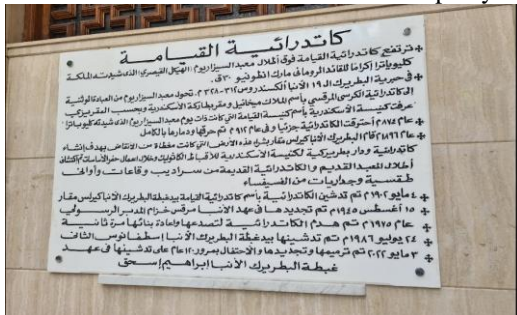 كاتدرائية القيامة
ترتفع كاتدرائية القيامة فوق أطلال معبد السيزاريوم (الهيكل القيصري) الذي شيدته الملكة
كليوباترا إكراما للقائد الروماني مارك أنطونيو ٣٠ ق.
في حبرية البطريرك الـ ١٩ الأنبا ألكسندروس ٣١٢-٣٢٨م. تحول معبد السيزاريوم من العبادة الوثنية
إلى كاتدرائية الكرسي المرقسي باسم الملاك ميخائيل ومقر بطاركة الأسكندرية وبحسب المقريزي
عرفت كنيسة الأسكندرية بأسم كنيسة القيامة التي كانت ذات يوم معبد السيزاريوم الذي شيدته كليوباترا
عام ٨٧٤م أحترقت الكاتدرائية جزئيا وفي عام ٩١٢م تم حرقها ودمارها بالكامل
عام ١٨٩٦م قام البطريرك الأنبا كيرلس مقار بشراء هذه الأرض التي كانت مغطاة من الأنقاض بهدف إنشاء
كاتدرائية ودار بطريركية لكنيسة الأسكندرية للأقباط الكاثوليك وخلال أعمال حفر الأساسات تم أكتشاف
أطلال المعبد القديم والكاتدرائية القديمة من سراديب وقاعات وأواني
طقسية وجداريات من الفسيفساء
٤ مايو ١٩٠٢م تم تدشين الكاتدرائية بأسم كاتدرائية القيامة بيد غبطة البطريرك الأنبا كيرلس مقار
١٥ أغسطس ١٩٤٥م تم تجديدها في عهد الأنبا مرقس خزام المدبر الرسولي
عام ١٩٧٥م تم هدم الكاتدرائية لتصدعها وإعادة بنائها مرة ثانية
٢٤ يوليو ١٩٨٦م تم تدشينها بيد غبطة البطريرك الأنبا إسطفانوس الثاني
٣ مايو ٢٠٢٢م تم ترميمها وتجديدها والأحتفال بمرور ١٢٠ عام على تدشينها في عهد
غبطة البطريرك الأنبا إبراهيم إسحق